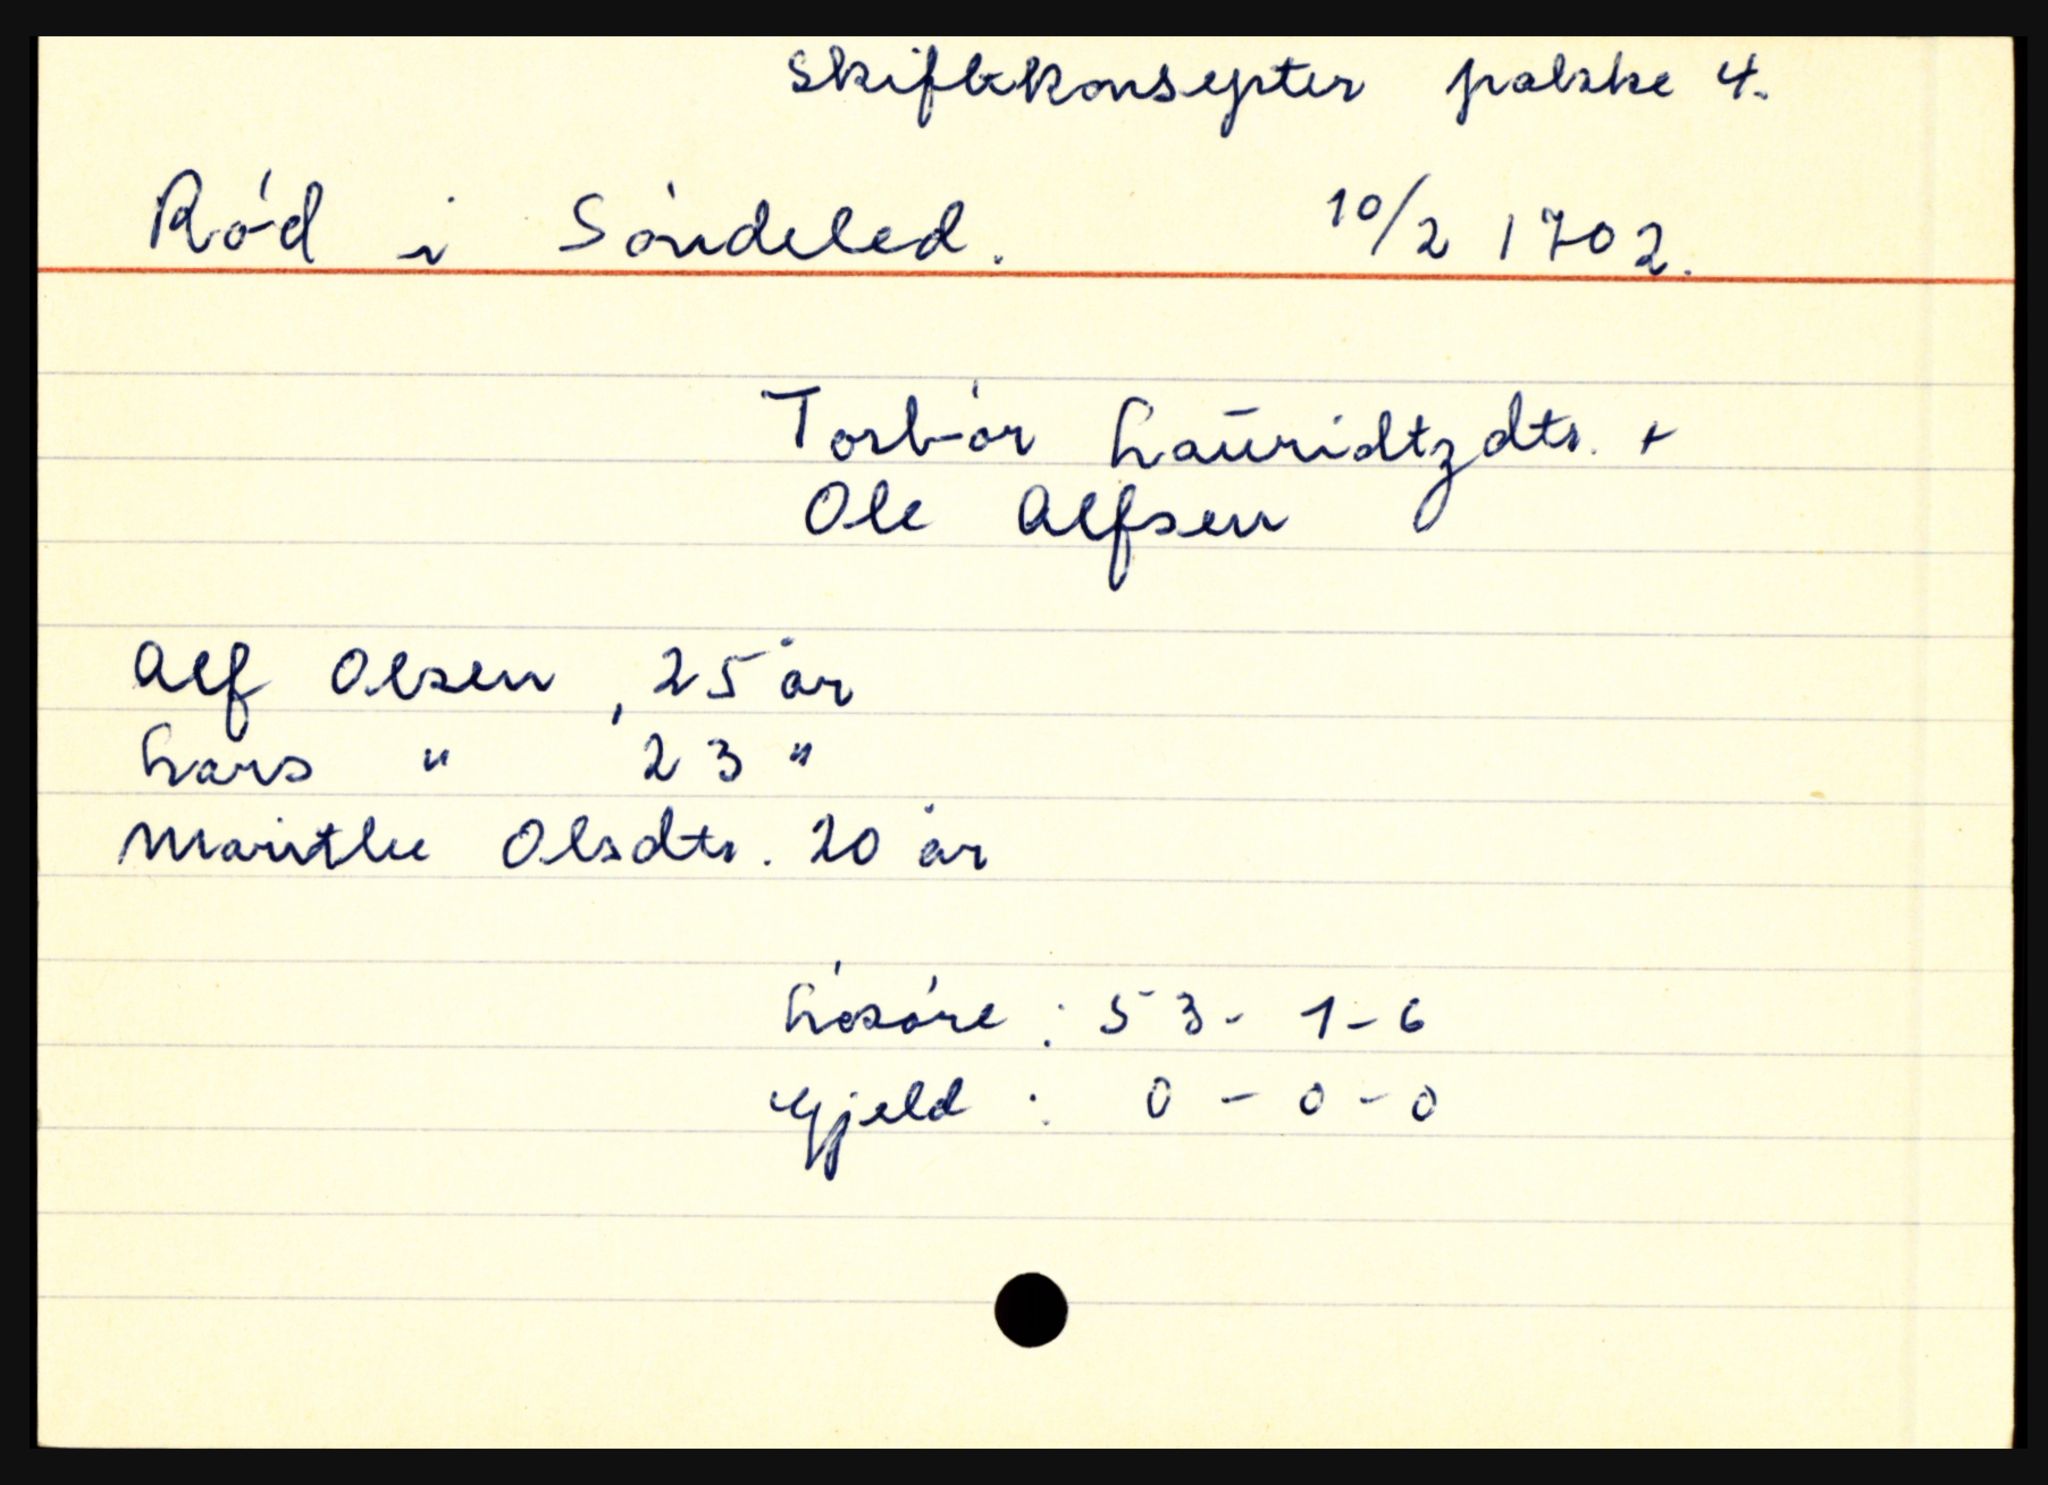 Skiftekonsepter pakke 4.
Rød i Søndeled. 10/2 1702.
Torbiør Lauridtzdtr. +
Ole Alfsen
Alf Olsen, 25 år
Lars " 23 "
Marithe Olsdtr. 20 år
Løsøre: 53 - 1 - 6
Gjeld: 0 - 0 - 0